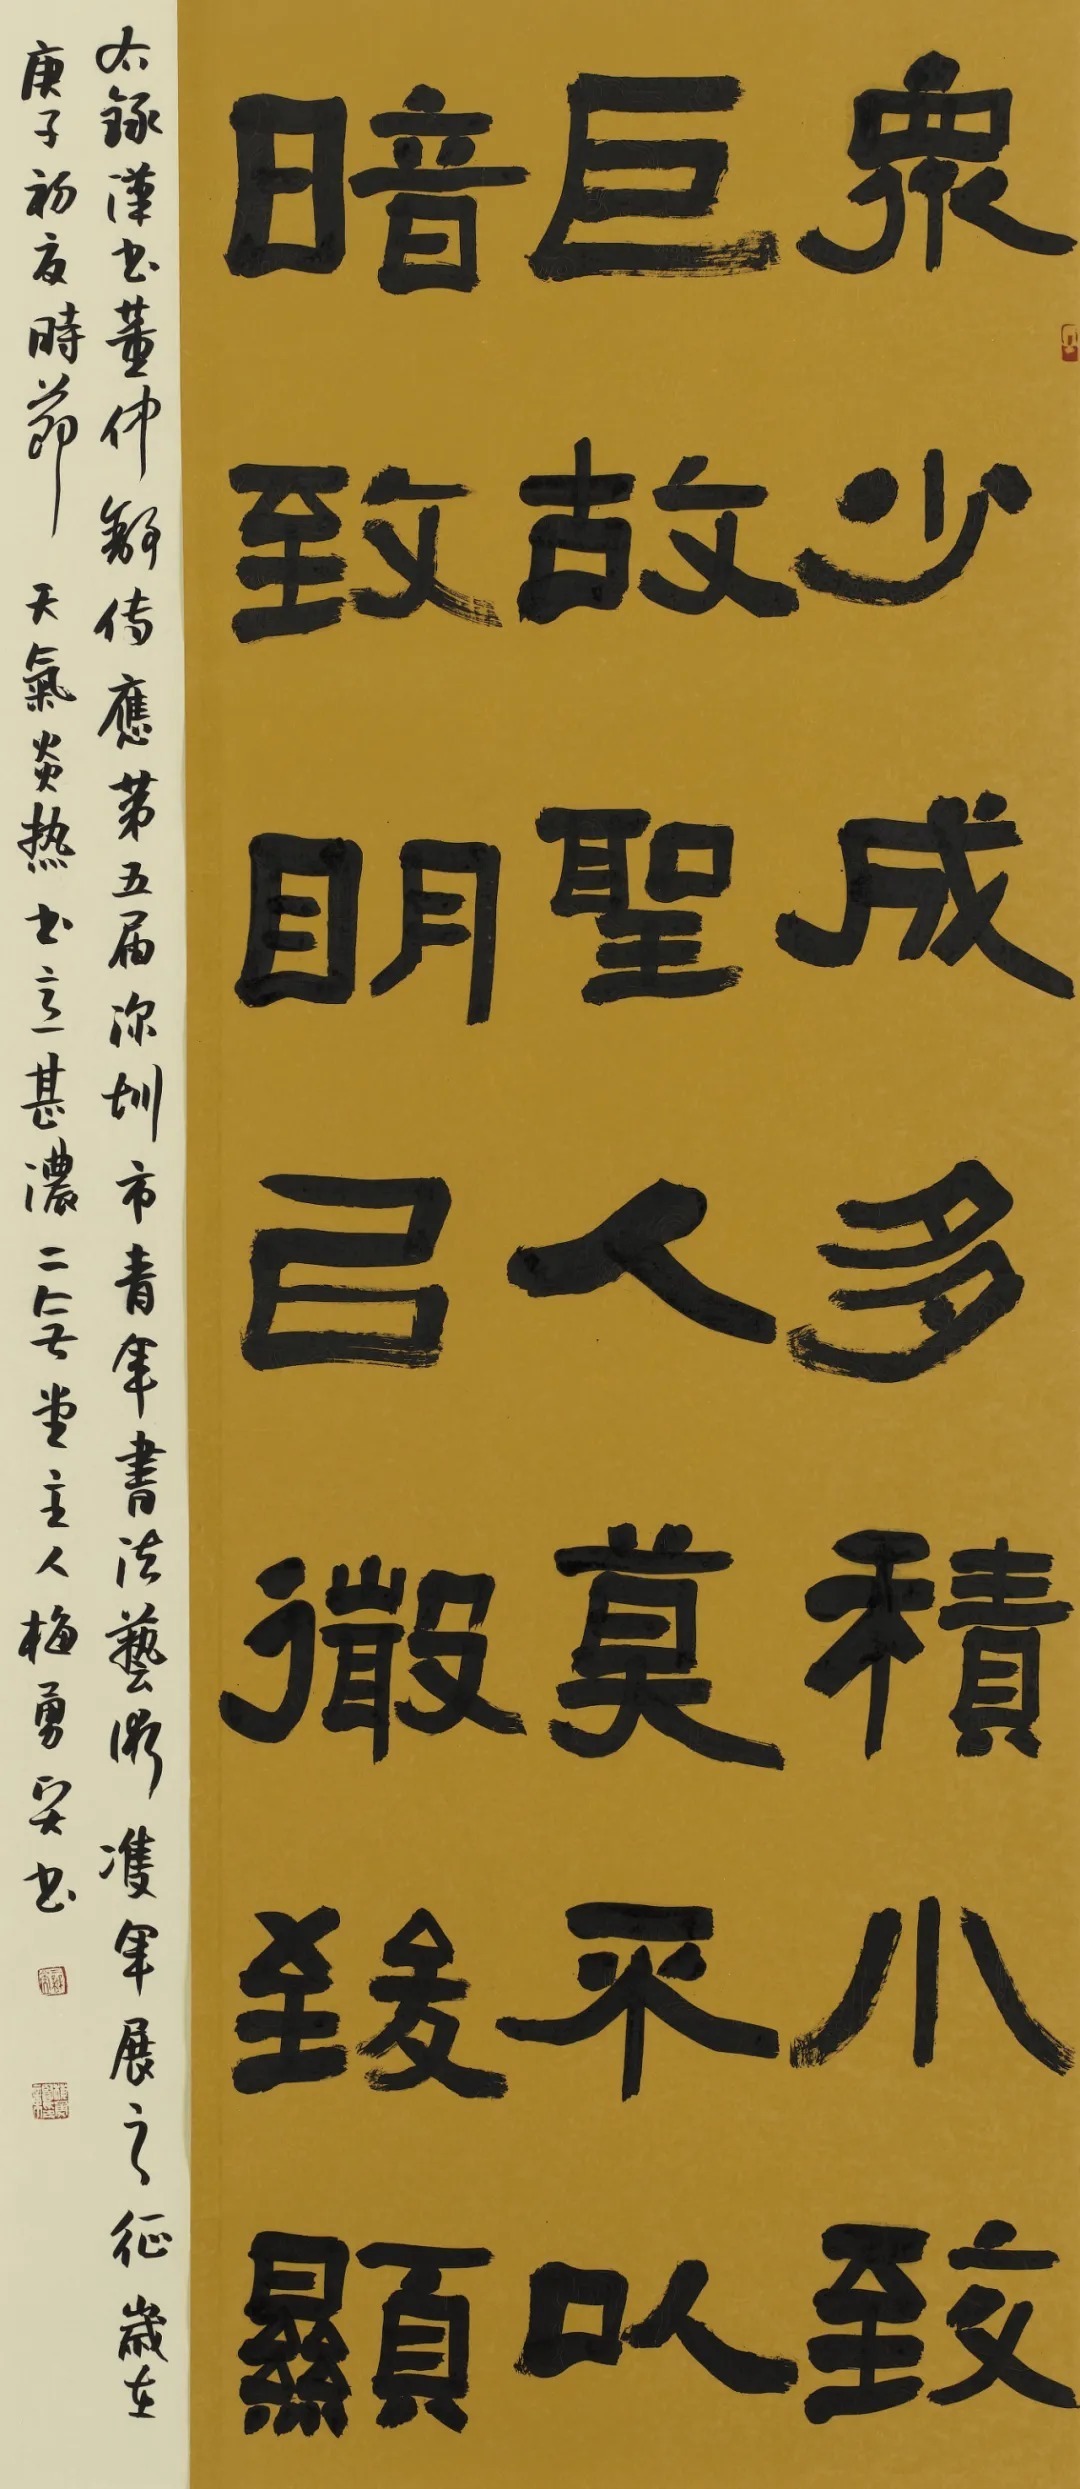 眾少成多積小致
巨故聖人莫不以
暗致眀㠯微致顯
右錄漢书董仲舒傳應第五届深圳市青年書法藝術雙年展之征歲在
庚子初夏時節 天氣炎热书意甚濃二堂主人梅勇书